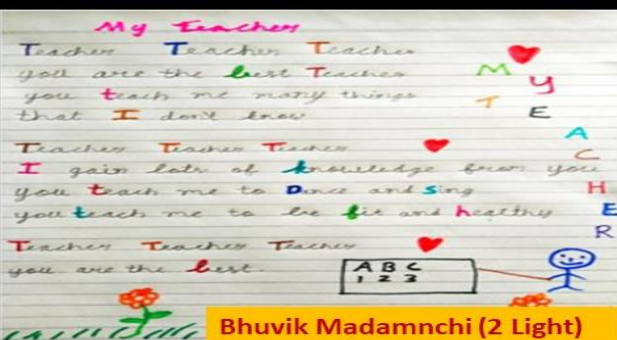 My Teacher
Teacher Teacher Teacher
you are the best Teacher
you teach me many things
that I don't know
Teacher Teacher Teacher
I gain lots of knowledge from you
you teach me to Dance and sing
you teach me to be fit and healthy
Teacher Teacher Teacher
you are the best.
MY TEACHER
A B C
1 2 3
Bhuvik Madamnchi (2 Light)